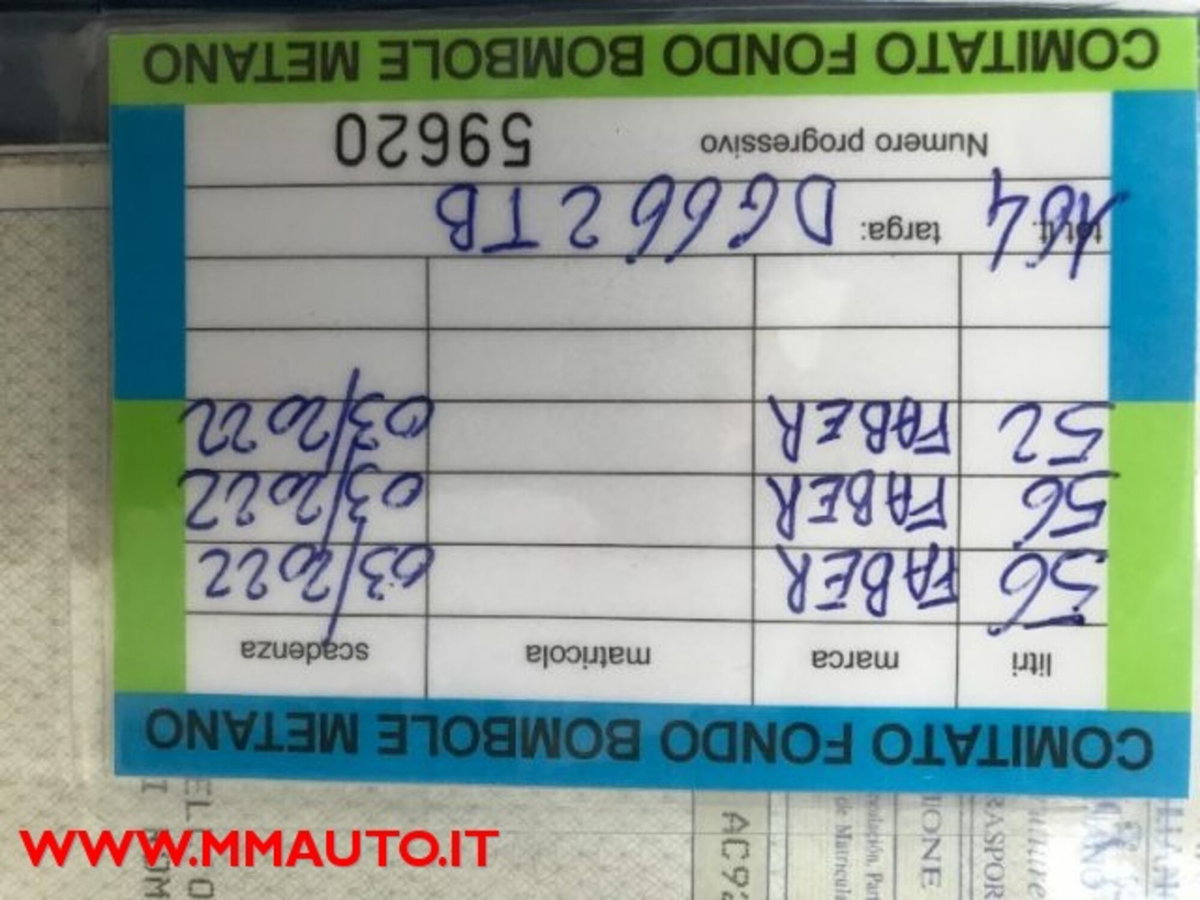 COMITATO FONDO BOMBOLE METANO
litri marca matricola scadenza
56 FABER 03/2022
56 FABER 03/2022
52 FABER 03/2022
tot.lt. 164 targa: DG662TB
Numero progressivo 59620
COMITATO FONDO BOMBOLE METANO
WWW.MMAUTO.IT
AC92
de Matricul
IONE
RASPOR